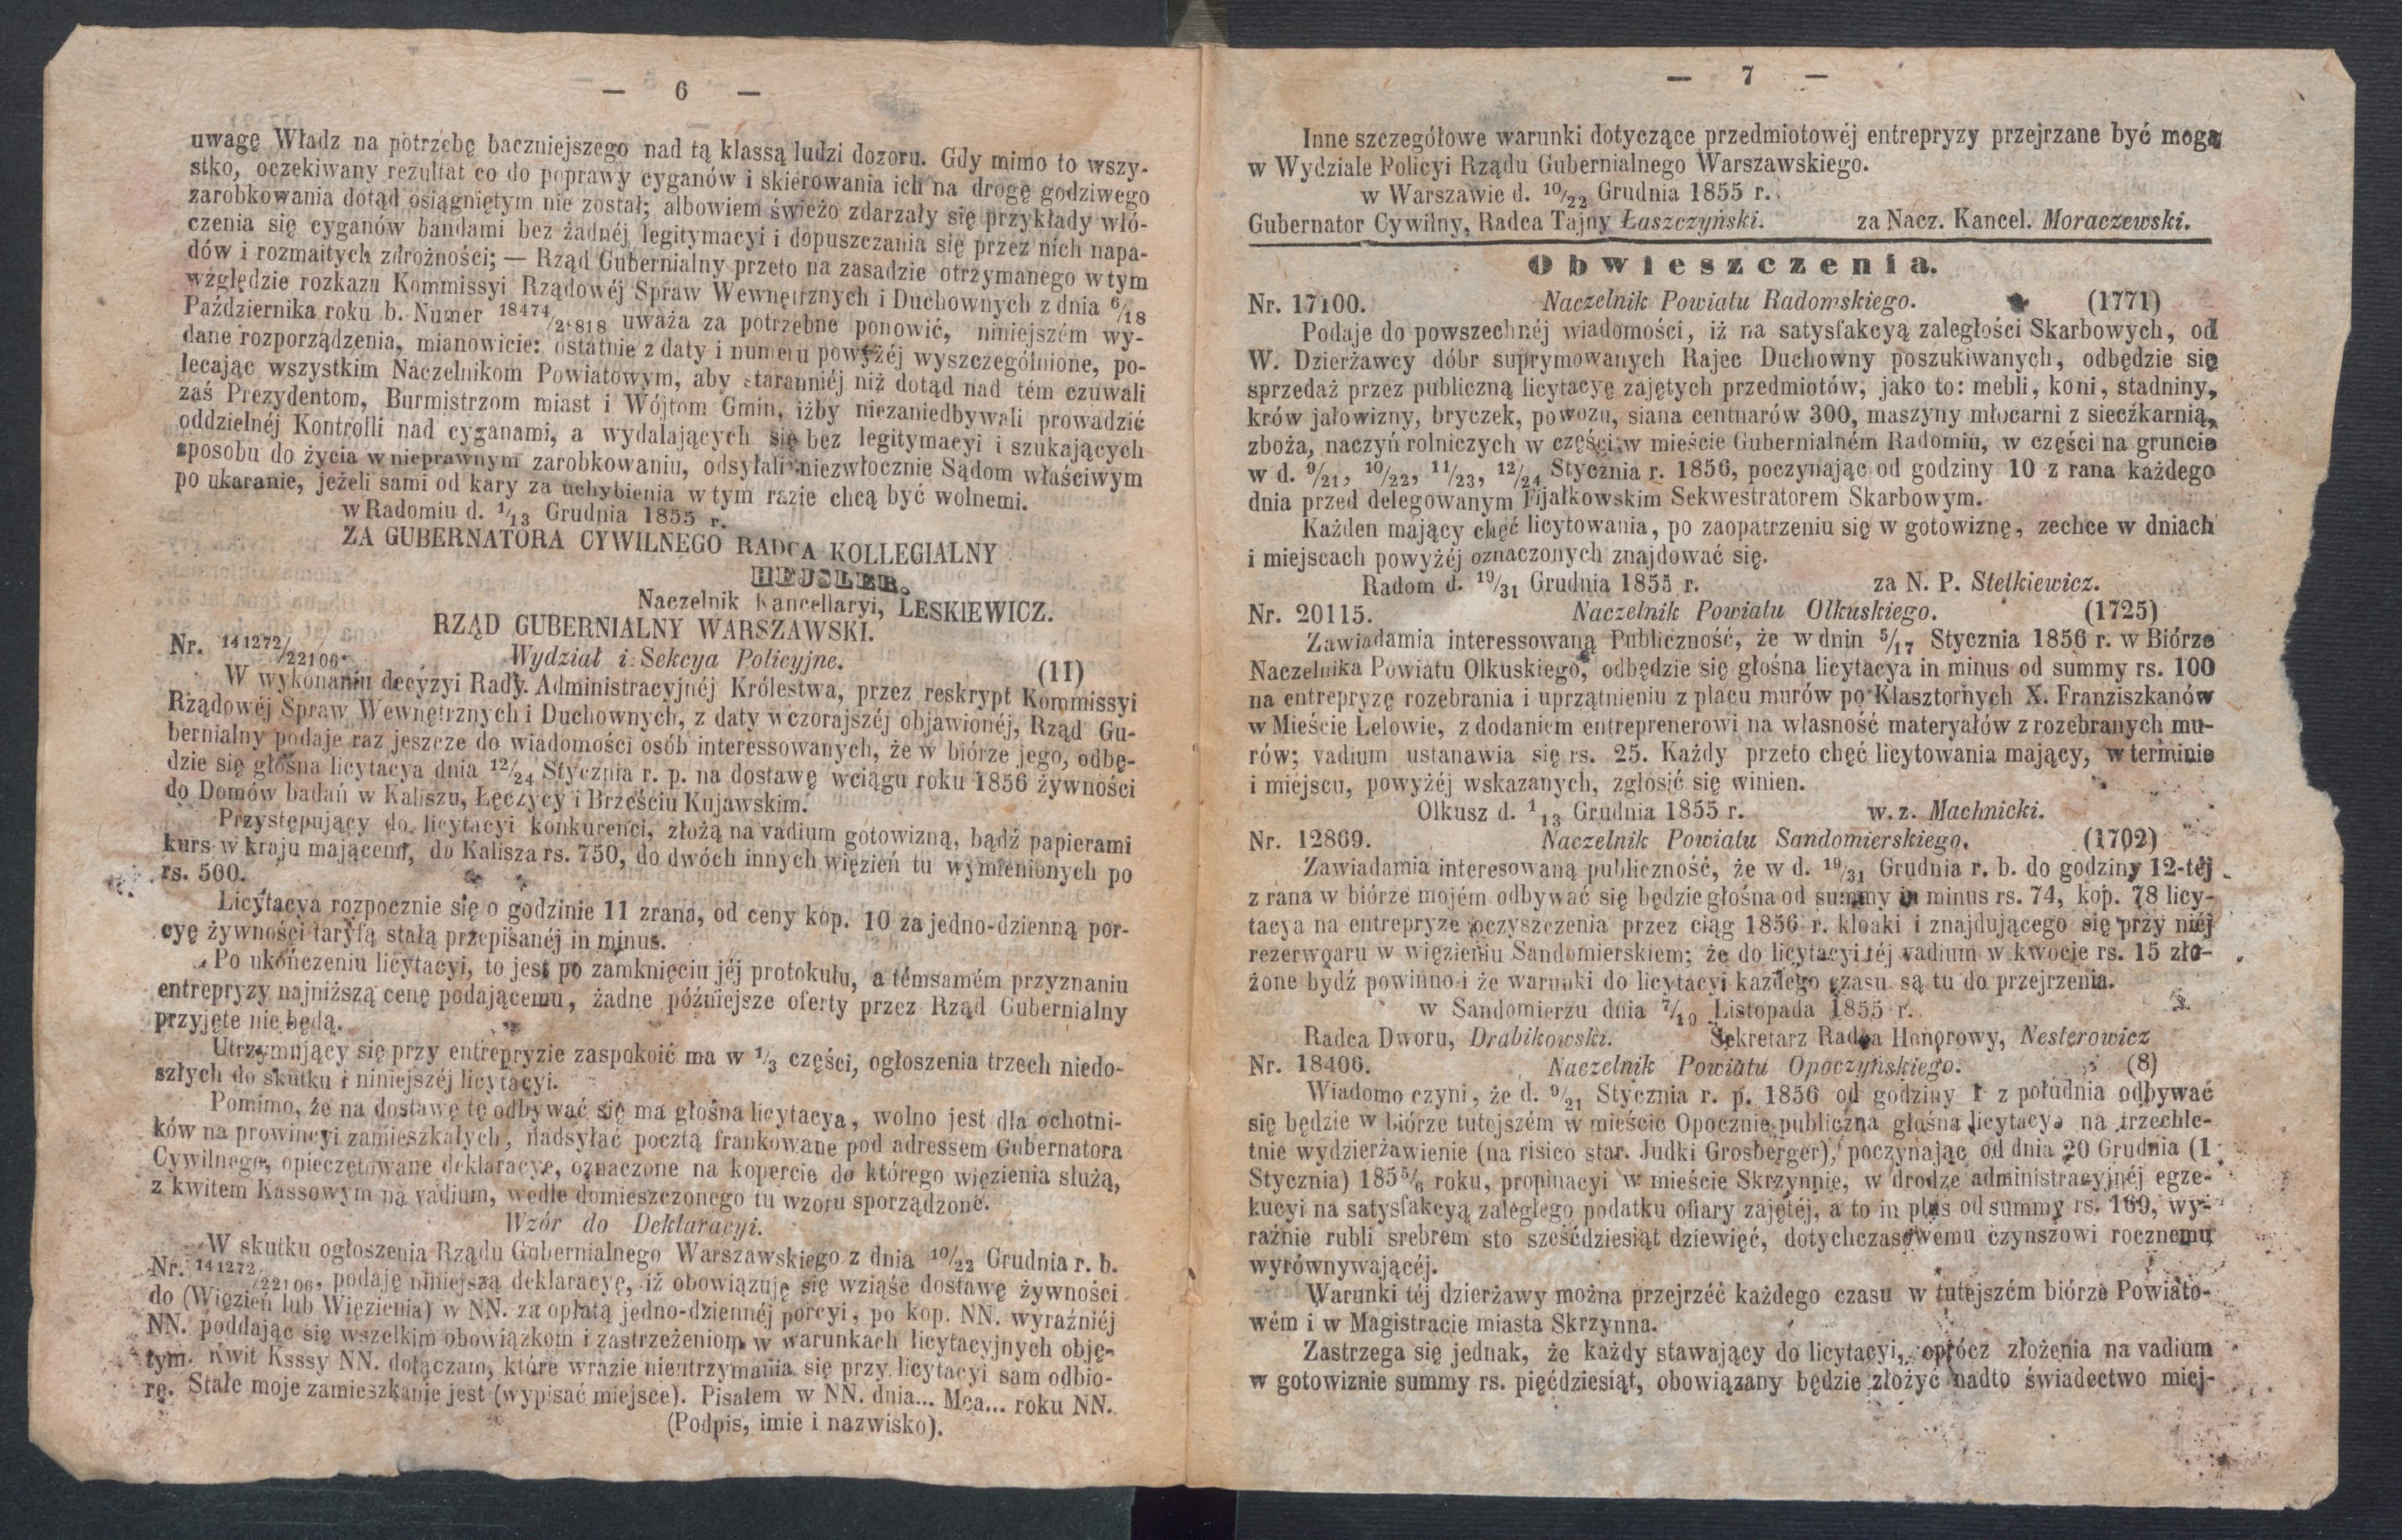 — 6 —
uwagę Władz na potrzebę baczniejszego nad tą klassą ludzi dozoru. Gdy mimo to wszy-
stko, oczekiwany rezultat co do poprawy cyganów i skierowania ich na drogę godziwego
zarobkowania dotąd osiągniętym nie został; albowiem świeżo zdarzały się przykłady włó-
czenia się cyganów bandami bez żadnéj legitymacyi i dopuszczania się przez nich napa-
dów i rozmaitych zdrożności; — Rząd Gubernialny przeto na zasadzie otrzymanego w tym
względzie rozkazu Kommissyi Rządowéj Spraw Wewnętrznych i Duchownych z dnia 6/18
Października roku b. Numer 18474/2 818 uważa za potrzebne ponowić, niniejszém wy-
dane rozporządzenia, mianowicie: ostatnie z daty i numeru powyżéj wyszczególnione, po-
lecając wszystkim Naczelnikom Powiatowym, aby staranniéj niż dotąd nad tém czuwali
zaś Prezydentom, Burmistrzom miast i Wójtom Gmin, iżby niezaniedbywali prowadzić
oddzielnéj Kontrolli nad cyganami, a wydalających się bez legitymacyi i szukających
sposobu do życia w nieprawnym zarobkowaniu, odsyłali niezwłocznie Sądom właściwym
po ukaranie, jeżeli sami od kary za uchybienia w tym razie chcą być wolnemi.
w Radomiu d. 1/13 Grudnia 1855 r.
ZA GUBERNATORA CYWILNEGO RADCA KOLLEGIALNY
HEJSLER.
Naczelnik Kancellaryi, LESKIEWICZ.
RZĄD GUBERNIALNY WARSZAWSKI.
Nr. 141272/22106. Wydział i Sekcya Policyjne. (11)
W wykonaniu decyzyi Rady Administracyjnéj Królestwa, przez reskrypt Kommissyi
Rządowéj Spraw Wewnętrznych i Duchownych, z daty wczorajszéj objawionéj, Rząd Gu-
bernialny podaje raz jeszcze do wiadomości osób interessowanych, że w biórze jego, odbę-
dzie się głośna licytacya dnia 12/24 Stycznia r. p. na dostawę wciągu roku 1856 żywności
do Domów badań w Kaliszu, Łęczycy i Brześciu Kujawskim.
Przystępujący do licytacyi konkurenci, złożą na vadium gotowizną, bądź papierami
kurs w kraju mającemi, do Kalisza rs. 750, do dwóch innych więzień tu wymienionych po
rs. 500.
Licytacya rozpocznie się o godzinie 11 zrana, od ceny kop. 10 za jedno-dzienną por-
cyę żywności taryfą stałą przepisanéj in minus.
Po ukończeniu licytacyi, to jest po zamknięciu jéj protokułu, a témsamém przyznaniu
entrepryzy najniższą cenę podającemu, żadne późniejsze oferty przez Rząd Gubernialny
przyjęte nie będą.
Utrzymujący się przy entrepryzie zaspokoić ma w 1/3 części, ogłoszenia trzech niedo-
szłych do skutku i niniejszéj licytacyi.
Pomimo, że na dostawę tę odbywać się ma głośna licytacya, wolno jest dla ochotni-
ków na prowincyi zamieszkałych, nadsyłać pocztą frankowane pod adressem Gubernatora
Cywilnego, opieczętowane deklaracye, oznaczone na kopercie do którego więzienia służą,
z kwitem Kassowym na vadium, wedle domieszczonego tu wzoru sporządzone.
Wzór do Deklaracyi.
W skutku ogłoszenia Rządu Gubernialnego Warszawskiego z dnia 10/22 Grudnia r. b.
Nr. 141272/22106, podaję niniejszą deklaracyę, iż obowiązuję się wziąść dostawę żywności
do (Więzień lub Więzienia) w NN. za opłatą jedno-dziennéj porcyi, po kop. NN. wyraźniéj
NN. poddając się wszelkim obowiązkom i zastrzeżeniom w warunkach licytacyjnych obję-
tym. Kwit Ksssy NN. dołączam, które wrazie nieutrzymania się przy licytacyi sam odbio-
rę. Stałe moje zamieszkanie jest (wypisać miejsce). Pisałem w NN. dnia... Mca... roku NN.
(Podpis, imie i nazwisko).
— 7 —
Inne szczegółowe warunki dotyczące przedmiotowéj entrepryzy przejrzane być mogą
w Wydziale Policyi Rządu Gubernialnego Warszawskiego.
w Warszawie d. 10/22 Grudnia 1855 r.
Gubernator Cywilny, Radca Tajny Łaszczyński. za Nacz. Kancel. Moraczewski.
Obwieszczenia.
Nr. 17100. Naczelnik Powiatu Radomskiego. (1771)
Podaje do powszechnéj wiadomości, iż na satysfakcyą zaległości Skarbowych, od
W. Dzierżawcy dóbr suprymowanych Rajec Duchowny poszukiwanych, odbędzie się
sprzedaż przez publiczną licytacyę zajętych przedmiotów, jako to: mebli, koni, stadniny,
krów jałowizny, bryczek, powozu, siana centnarów 300, maszyny młocarni z sieczkarnią,
zboża, naczyń rolniczych w części w mieście Gubernialném Radomiu, w części na gruncie
w d. 9/21, 10/22, 11/23, 12/24 Stycznia r. 1856, poczynając od godziny 10 z rana każdego
dnia przed delegowanym Fijałkowskim Sekwestratorem Skarbowym.
Każden mający chęć licytowania, po zaopatrzeniu się w gotowiznę, zechce w dniach
i miejscach powyżéj oznaczonych znajdować się.
Radom d. 19/31 Grudnia 1855 r. za N. P. Stelkiewicz.
Nr. 20115. Naczelnik Powiatu Olkuskiego. (1725)
Zawiadamia interessowaną Publiczność, że w dniu 5/17 Stycznia 1856 r. w Biórze
Naczelnika Powiatu Olkuskiego, odbędzie się głośna licytacya in minus od summy rs. 100
na entrepryzę rozebrania i uprzątnieniu z placu murów po Klasztornych X. Franziszkanów
w Mieście Lelowie, z dodaniem entreprenerowi na własność materyałów z rozebranych mu-
rów; vadium ustanawia się rs. 25. Każdy przeto chęć licytowania mający, w terminie
i miejscu, powyżéj wskazanych, zgłosić się winien.
Olkusz d. 1/13 Grudnia 1855 r. w. z. Machnicki.
Nr. 12869. Naczelnik Powiatu Sandomierskiego. (1702)
Zawiadamia interesowaną publiczność, że w d. 19/31 Grudnia r. b. do godziny 12-téj
z rana w biórze mojém odbywać się będzie głośna od summy in minus rs. 74, kop. 78 licy-
tacya na entrepryze oczyszczenia przez ciąg 1856 r. kloaki i znajdującego się przy niéj
rezerwoaru w więzieniu Sandomierskiem; że do licytacyi téj vadium w kwocie rs. 15 zło-
żone bydź powinno i że warunki do licytacyi każdego czasu są tu do przejrzenia.
w Sandomierzu dnia 7/19 Listopada 1855 r.
Radca Dworu, Drabikowski. Sekretarz Radca Honorowy, Nesterowicz
Nr. 18406. Naczelnik Powiatu Opoczyńskiego. (8)
Wiadomo czyni, że d. 9/21 Stycznia r. p. 1856 od godziny 1 z południa odbywać
się będzie w biórze tutejszém w mieście Opocznie publiczna głośna licytacya na trzechle-
tnie wydzierżawienie (na risico star. Judki Grosberger), poczynając od dnia 20 Grudnia (1
Stycznia) 1855/6 roku, propinacyi w mieście Skrzynnie, w drodze administracyjnéj egze-
kucyi na satysfakcyą zaległego podatku ofiary zajętéj, a to in plus od summy rs. 169, wy-
raźnie rubli srebrem sto sześćdziesiąt dziewięć, dotychczasowemu czynszowi rocznemu
wyrównywającéj.
Warunki téj dzierżawy można przejrzéć każdego czasu w tutejszém biórze Powiato-
wém i w Magistracie miasta Skrzynna.
Zastrzega się jednak, że każdy stawający do licytacyi, oprócz złożenia na vadium
w gotowiznie summy rs. pięćdziesiąt, obowiązany będzie złożyć nadto świadectwo miej-